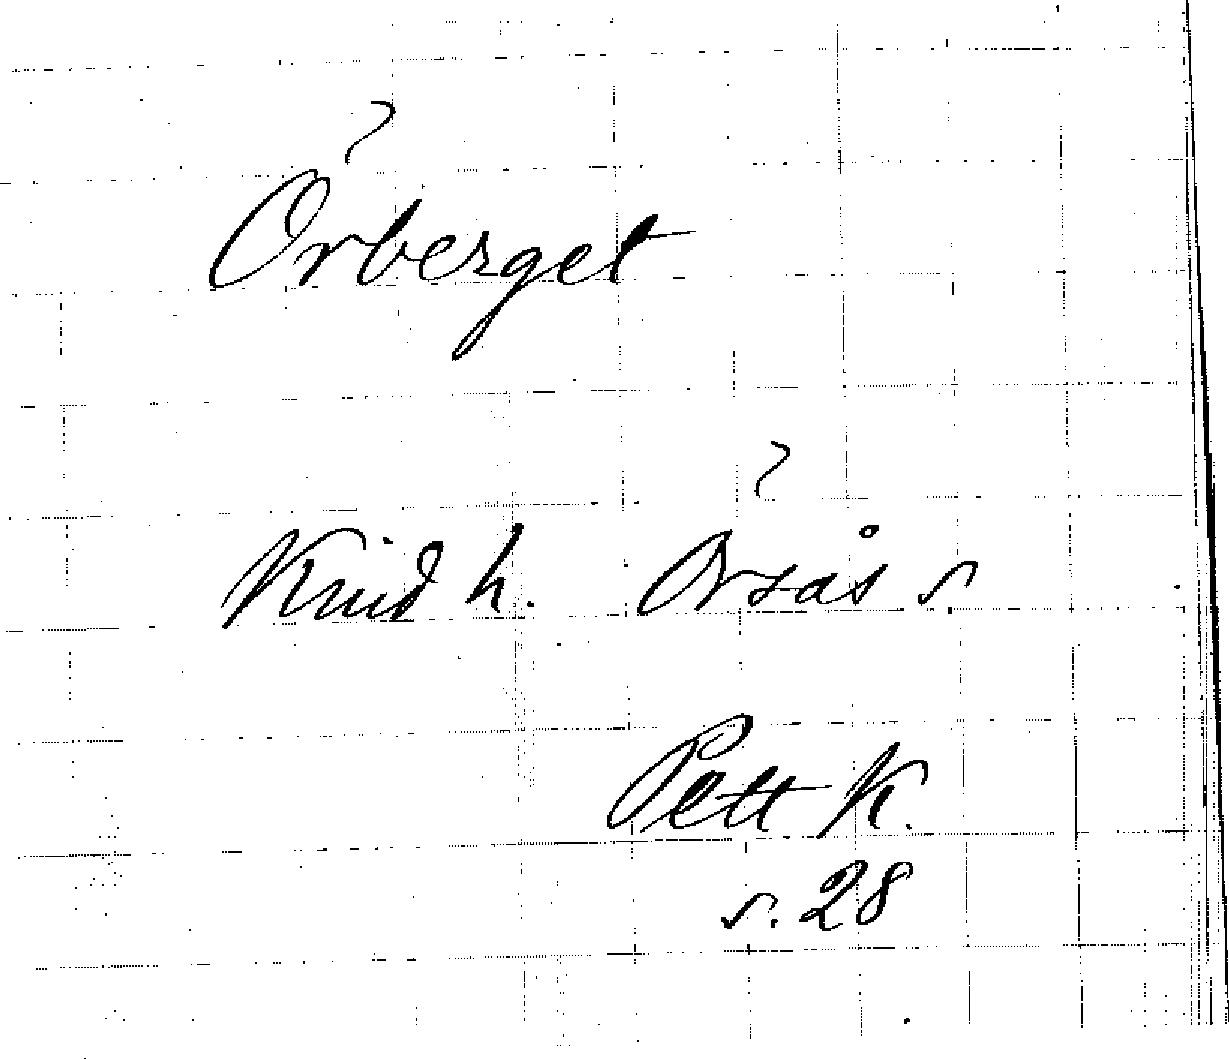 Örberget
Kind h. Örsås s
Pett K.
s. 28